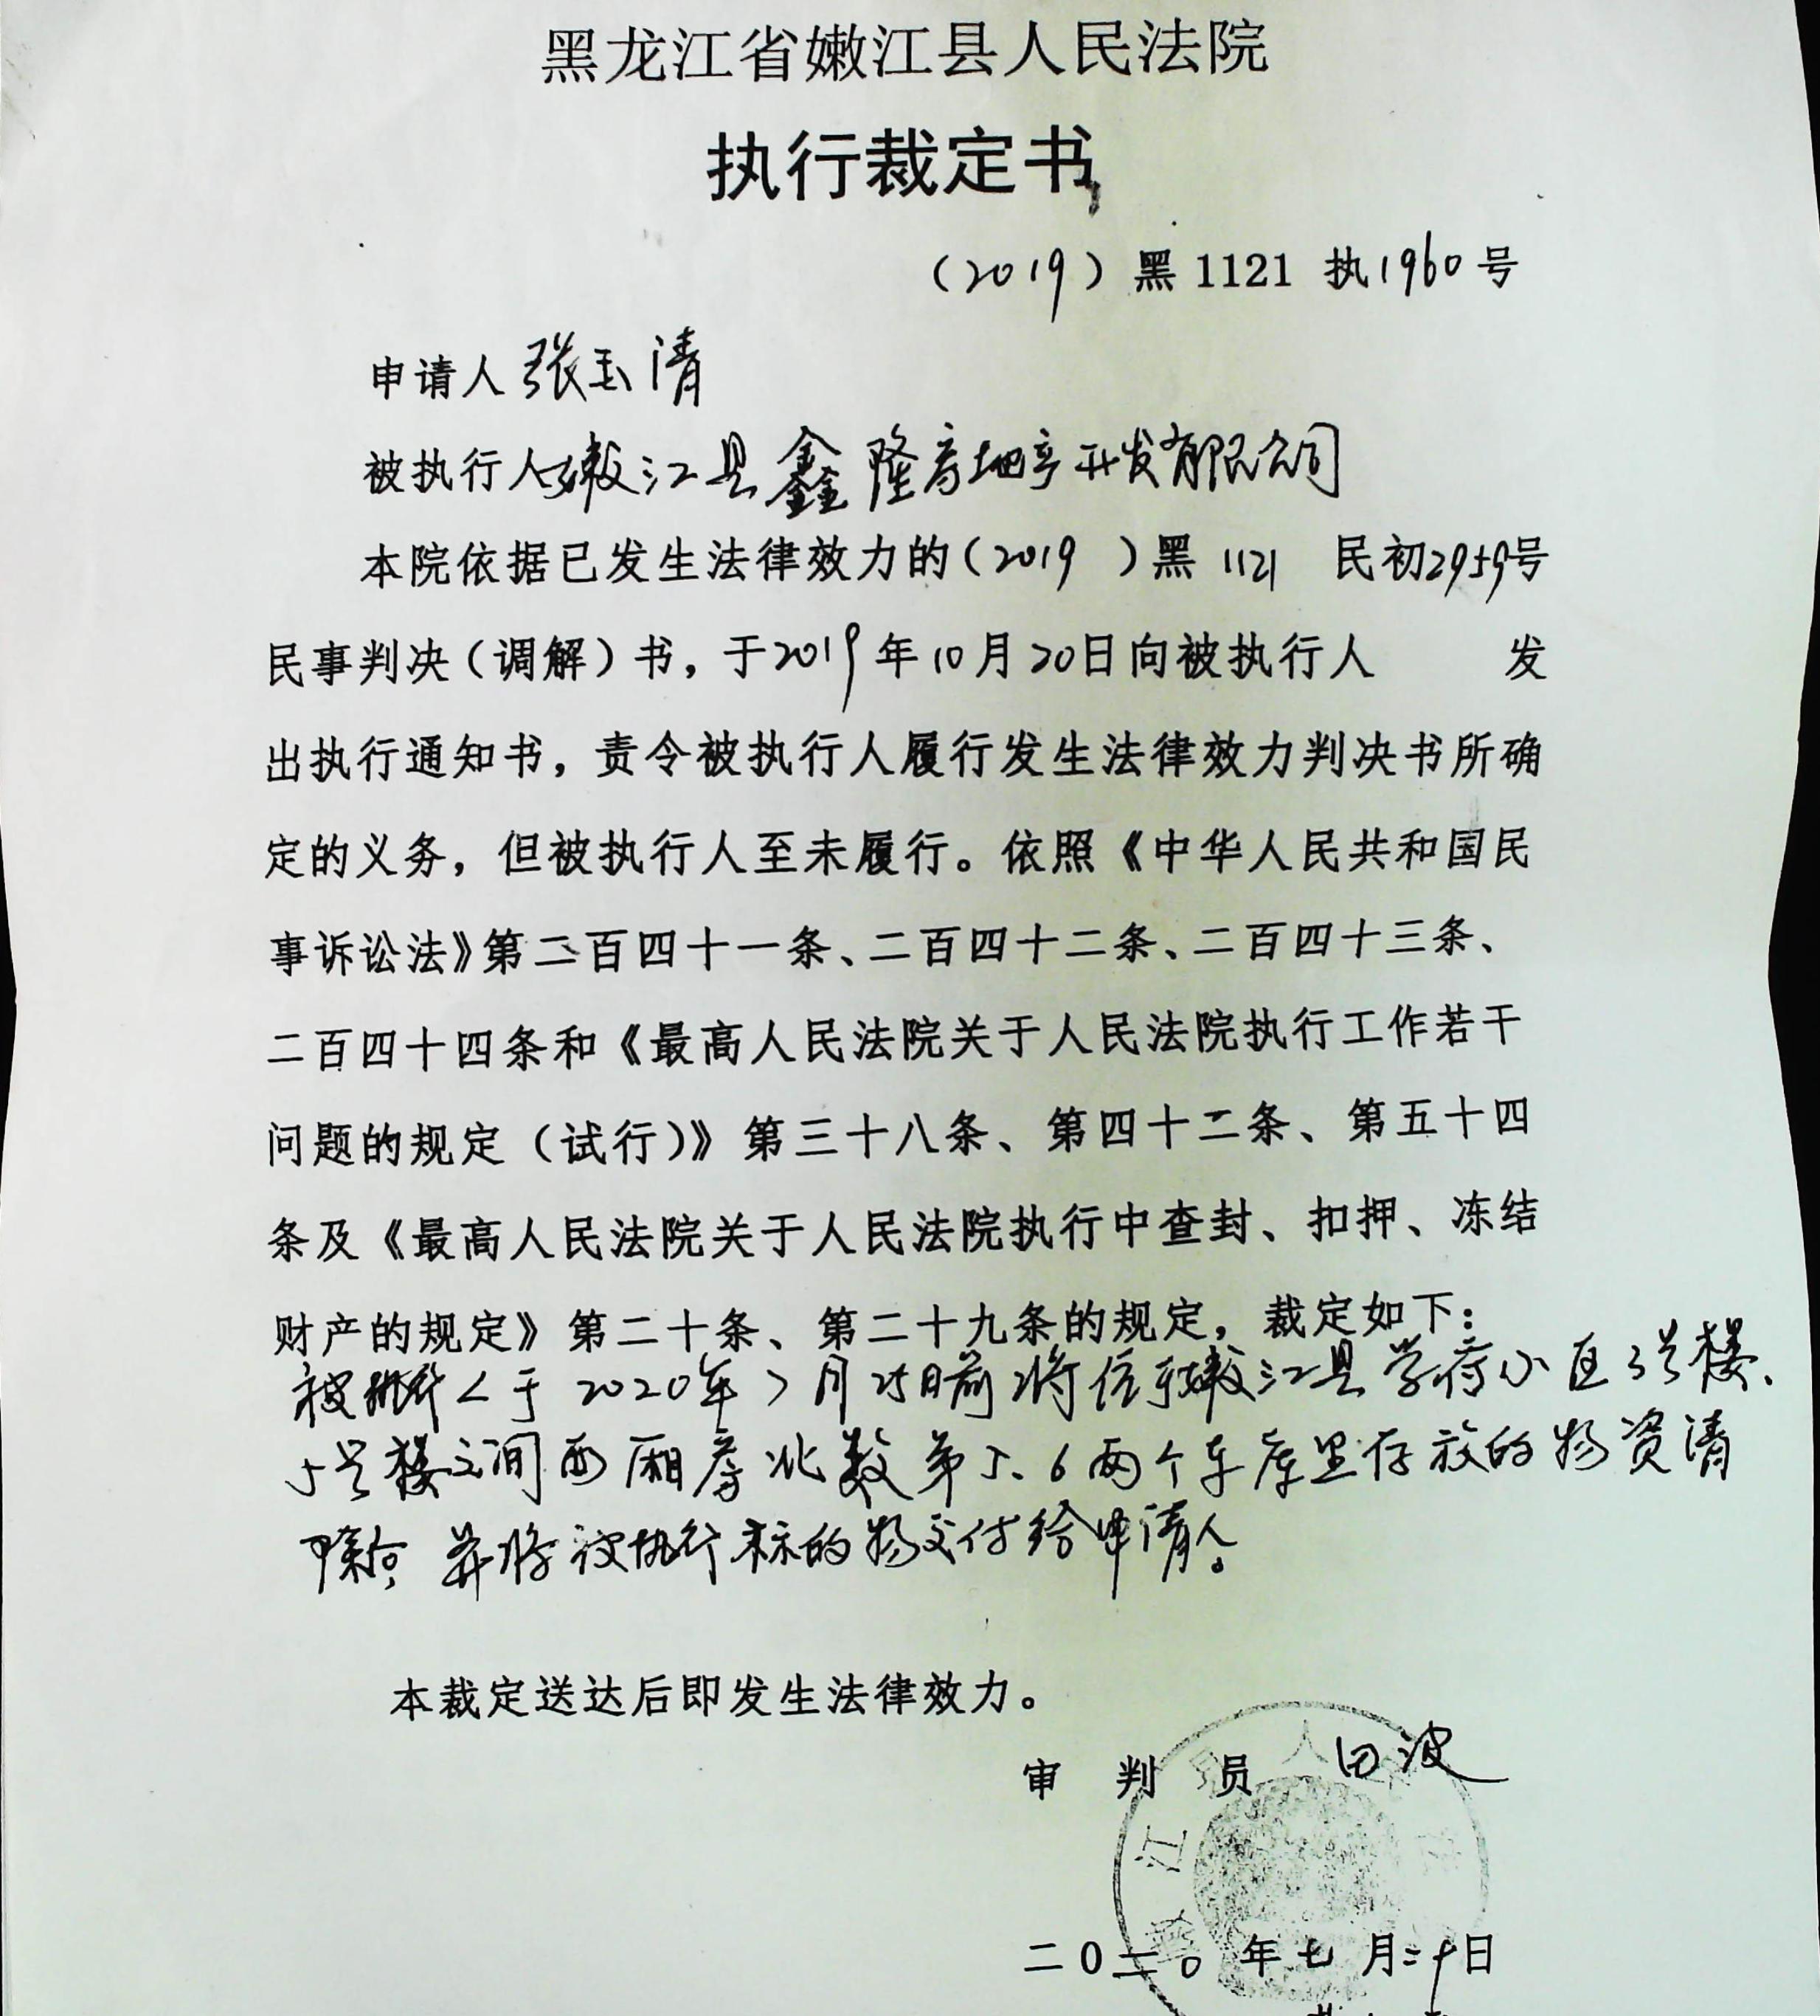 黑龙江省嫩江县人民法院
执行裁定书
（2019）黑 1121 执1960号
申请人 张玉清
被执行人嫩江县鑫隆房地产开发有限公司
本院依据已发生法律效力的（2019 ）黑 1121 民初2959号
民事判决（调解）书，于2019年10月20日向被执行人 发
出执行通知书，责令被执行人履行发生法律效力判决书所确
定的义务，但被执行人至未履行。依照《中华人民共和国民
事诉讼法》第二百四十一条、二百四十二条、二百四十三条、
二百四十四条和《最高人民法院关于人民法院执行工作若干
问题的规定（试行）》第三十八条、第四十二条、第五十四
条及《最高人民法院关于人民法院执行中查封、扣押、冻结
财产的规定》第二十条、第二十九条的规定，裁定如下：
被执行人于2020年7月25日前将位于嫩江县学府小区3号楼、
5号楼之间西厢房北数第5、6两个车库里存放的物资清
除，并将被执行标的物交付给申请人。
本裁定送达后即发生法律效力。
审 判 员 田波
二0二0年七月二十日
江 县 人